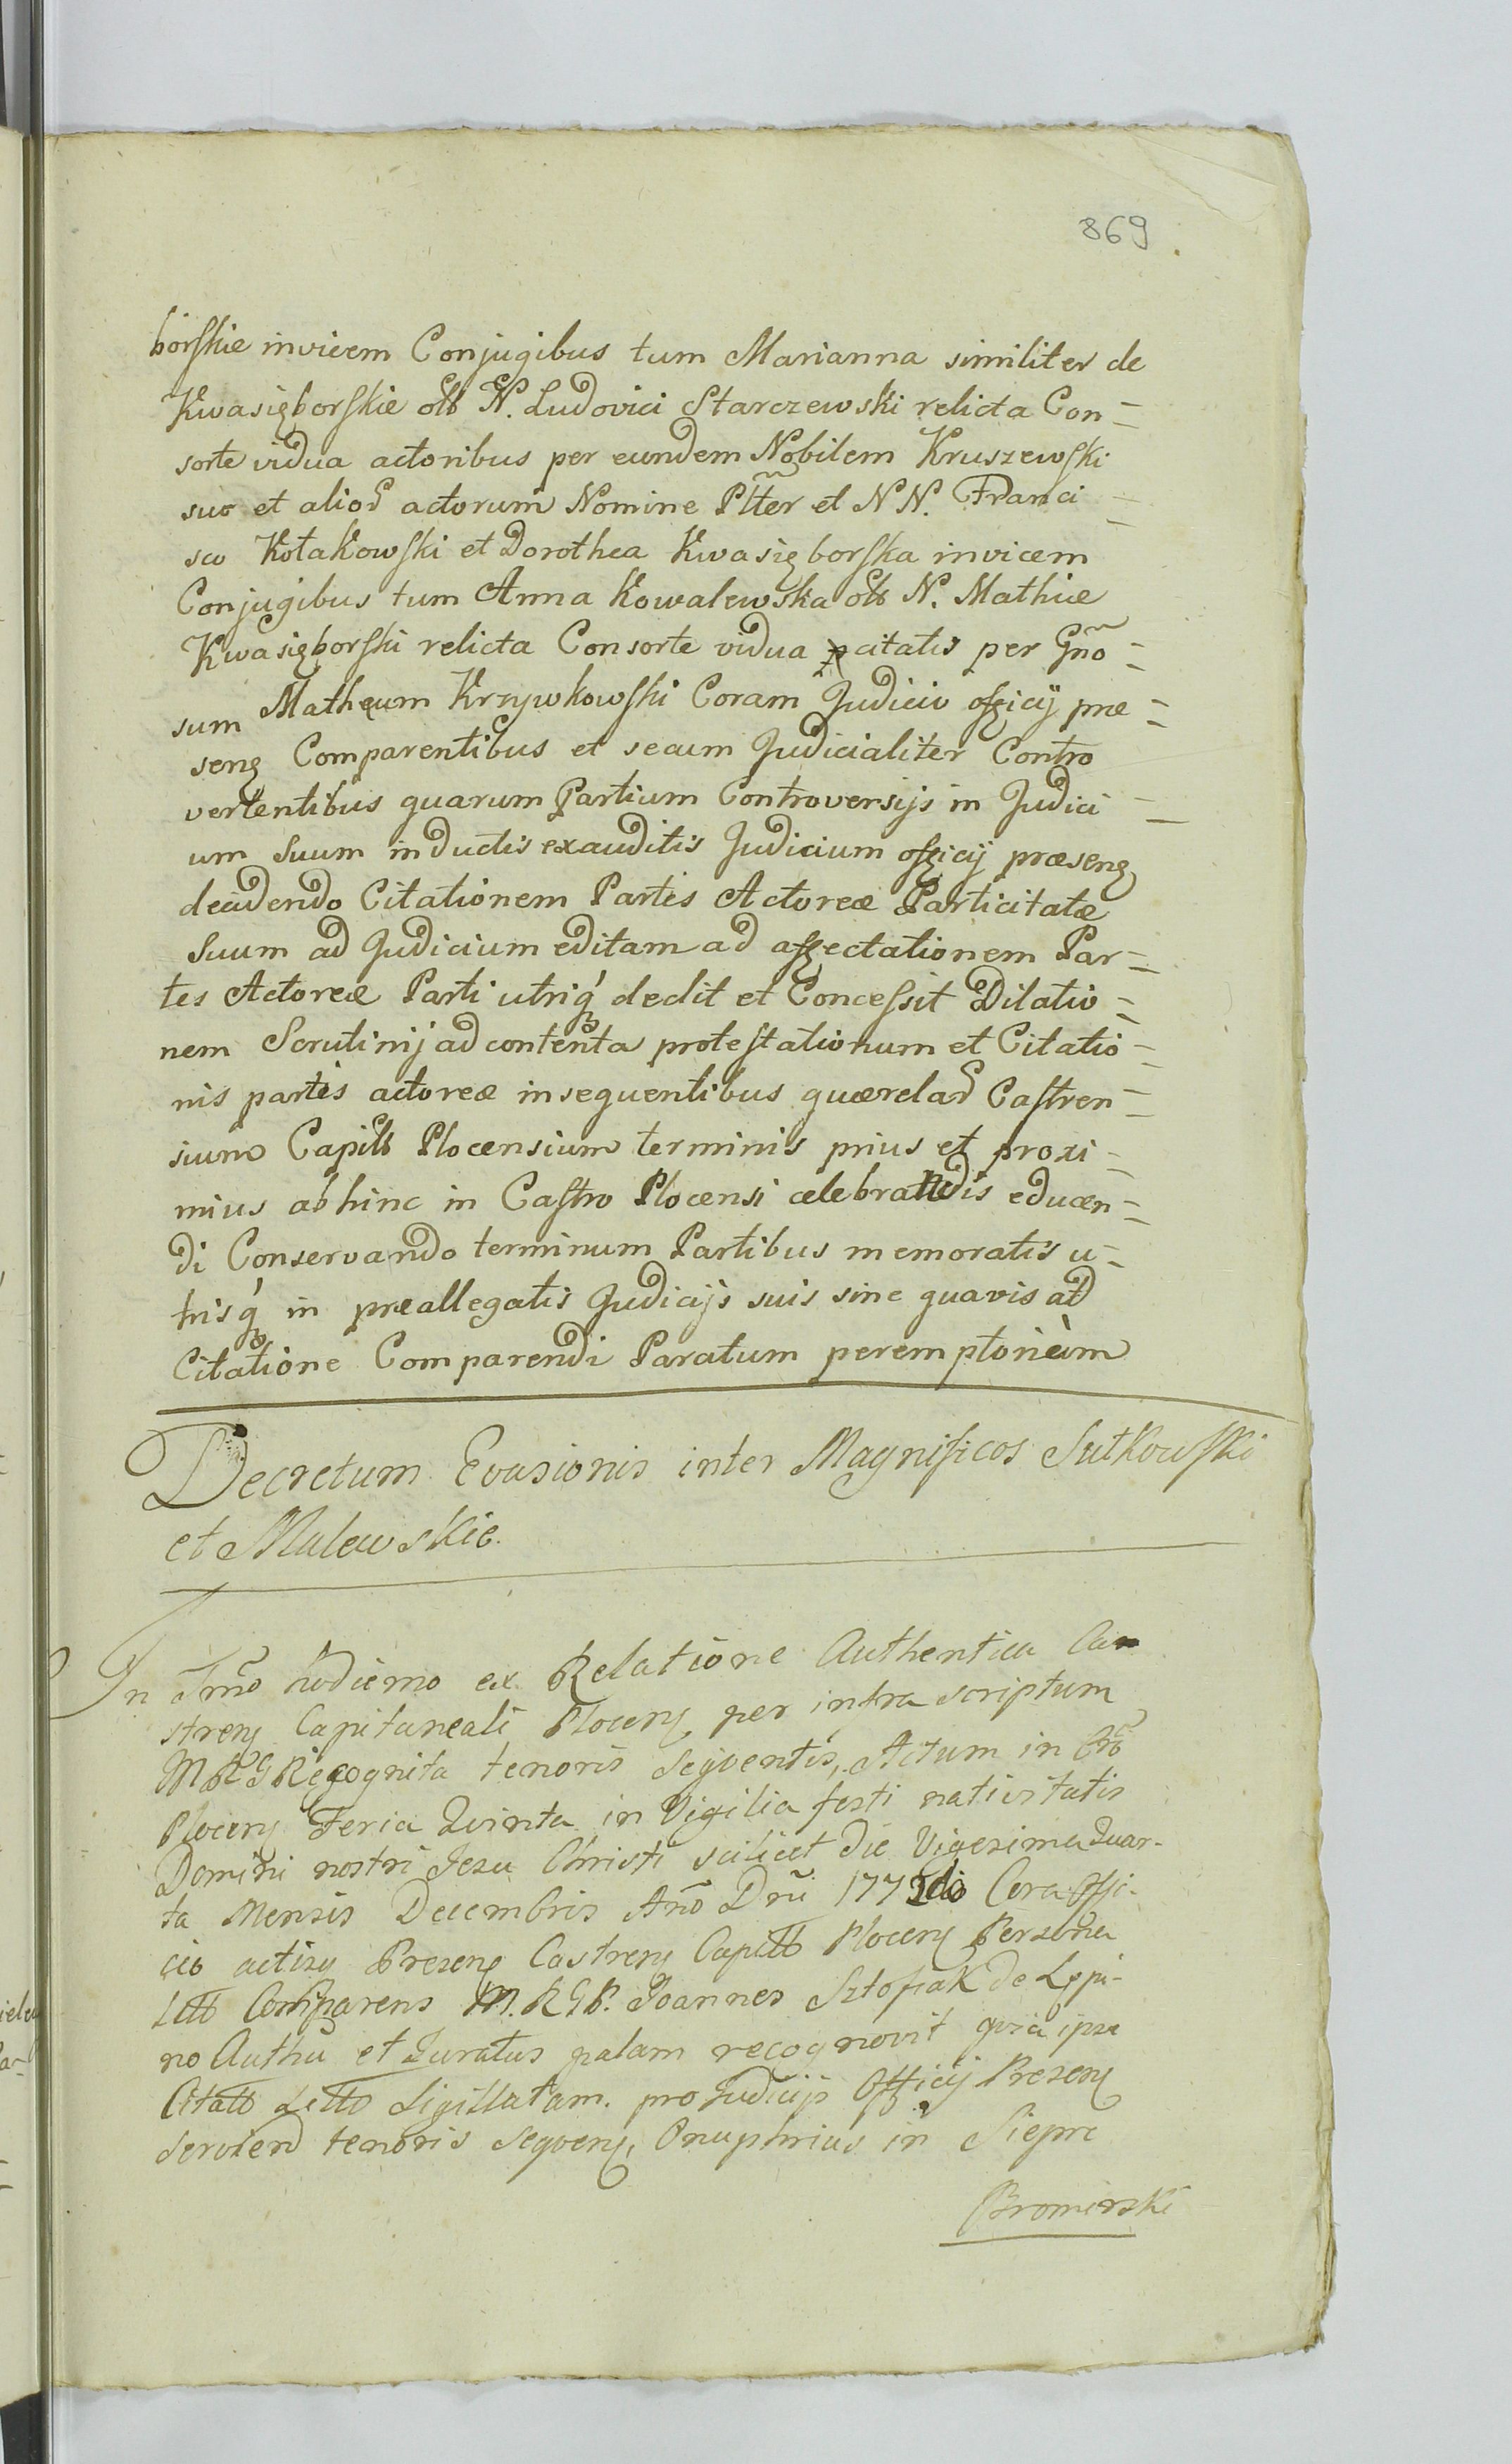 869
borskie invicem Conjugibus tum Marianna similiter de
Kwasięborskie olt N. Ludovici Starczewski relicta Con=
sorte vidua actoribus per eundem Nobilem Kruszewski
suo et alioꝝ actorum Nomine Pltter et N N. Franci=
sco Kołakowski et Dorothea Kwasięborska invicem
Conjugibus tum Anna Kowalewska olt N. Mathiæ
Kwasięborski relicta Consorte vidua citatis per Gño=
sum Mathęum Krzywkowski Coram Judicio officij præ=
senꝫ Comparentibus et secum Judicialiter Contro
vertentibus quarum Partium Controversijs in Judici=
um Suum inductis exauditis Judicium officij præsenꝫ
decidendo Citationem Partis Actoreæ Particitatæ
Suum ad Judicium editam ad affectationem Par=
tes Actoreæ Parti utriq́ dedit et Concessit Dilatio=
nem Scrutinij ad contenta protestationum et Citatio=
nis partis actoreæ insequentibus quærelaꝝ Castren=
sium Capitt Plocensium terminis prius et proxi=
mius abhinc in Castro Plocensi celebrandis educen=
di Conservando terminum Partibus memoratis u=
trisq́ in præallegatis Judicijs suis sine quavis ad
Citatione Comparendi Paratum peremptorièm
Decretum Evasionis inter Magnificos Sutkowski
et Malewskie.
In Tmõ hodierno ex Relatione Authentica Ca
strenꝫ Capitaneali Plocenꝫ per infra scriptum
M R G Recognita tenoris seqventis, Actum in Crõ
Plocenꝫ Feria Qvinta in Vigilia festi nativitatis
Domini nostri Jesu Christi scilicet die Vigesima Quar-
ta Mensis Decembris Año Dni 1772do Cora Offi-
cio actisq Presenꝫ Castrenꝫ Capitt Plocenꝫ Persona
Litt Comparens M. R G P. Joannes Sztofiak de Lepi-
no Authu et Juratus palam recognovit qvia ipse
Citatt Litto Sigillatam. pro Judicijs Officij Presenꝫ
serviend tenoris seqvenꝫ, Onuphrius in Siepre
Bromirski